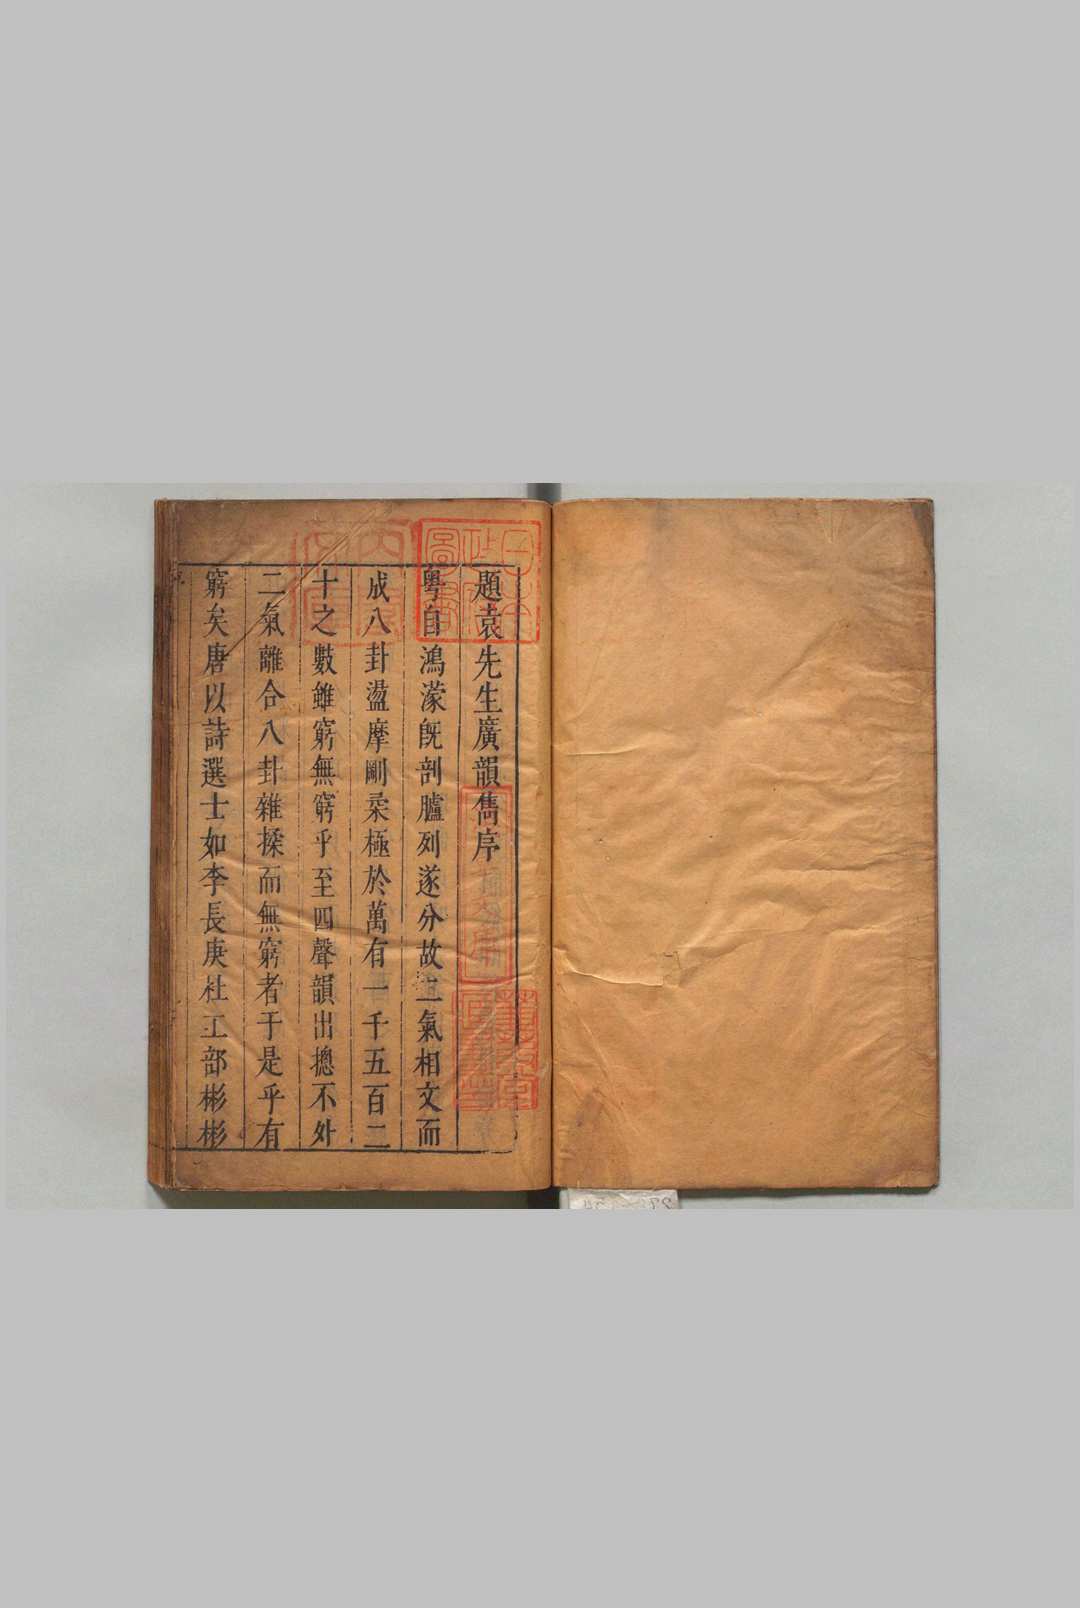 題袁先生廣韻雋序
粤自鴻濛旣剖臚列遂分故二氣相交而
成八卦盪摩剛柔極於萬有一千五百二
十之數雖窮無窮乎至四聲韻出摠不外
二氣離合八卦雜揉而無窮者于是乎有
窮矣唐以詩選士如李長庚杜工部彬彬